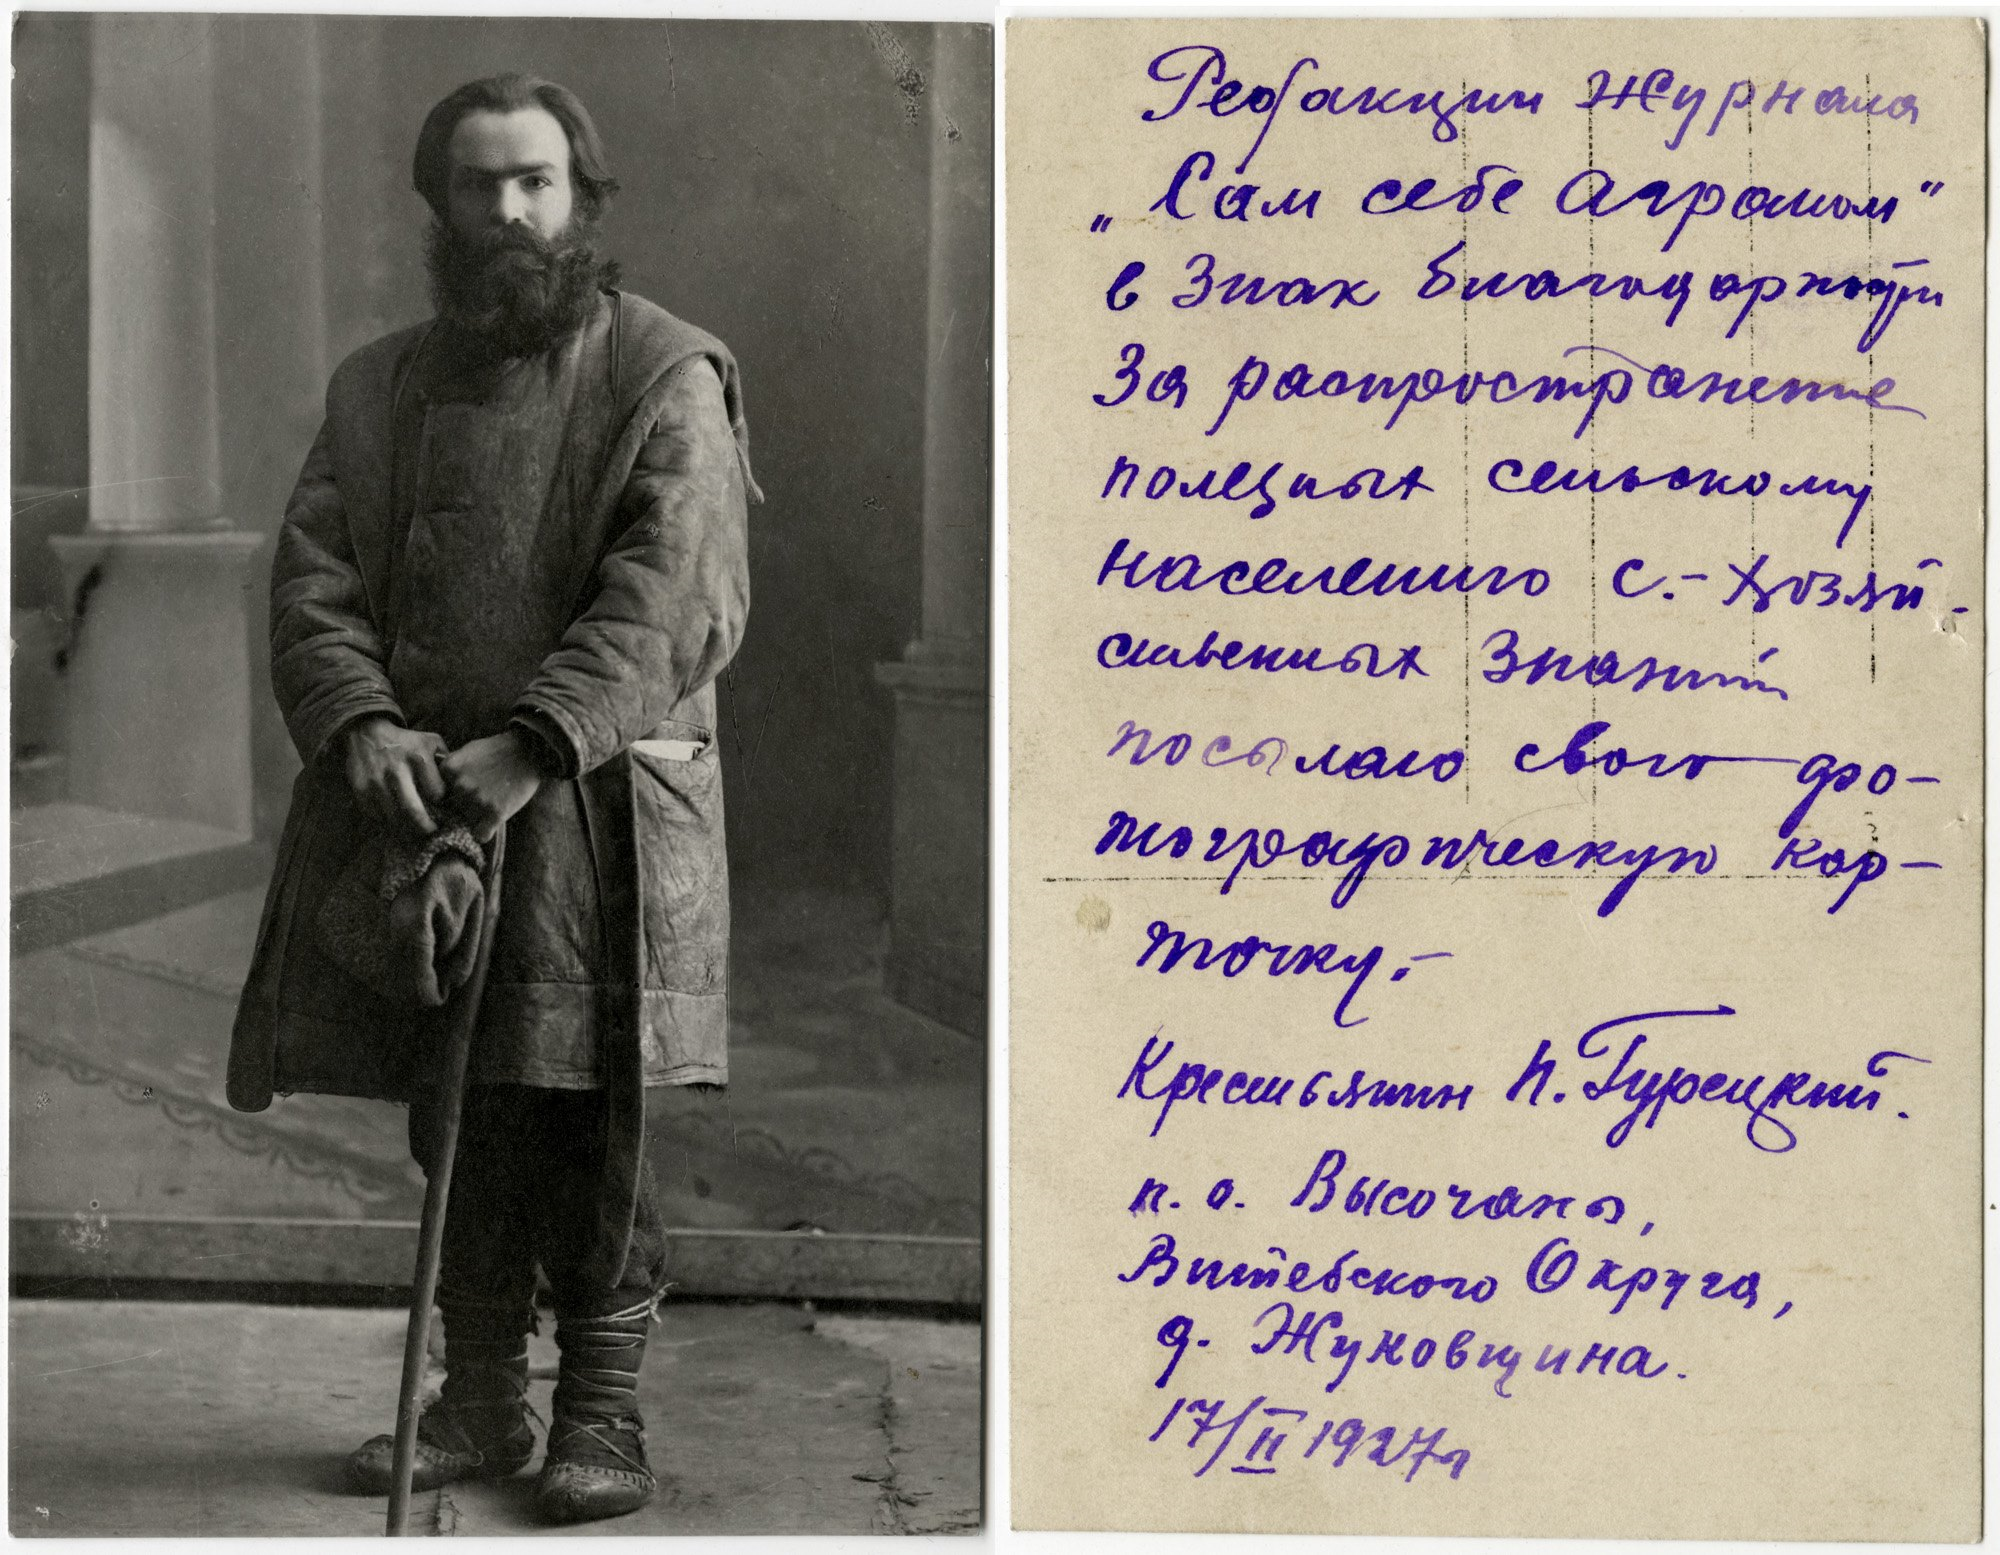 Редакции Журнала
„Сам себе Агроном"
в Знак благодарности
За распространение
полезных сельскому
населению с.-хозяй-
ственных Знаний
посылаю свою фо-
тографическую кар-
точку.-
Крестьянин П. Турецкий.
п. о. Высочаны,
Витебского Округа,
д. Жуковщина.
17/II 1927г